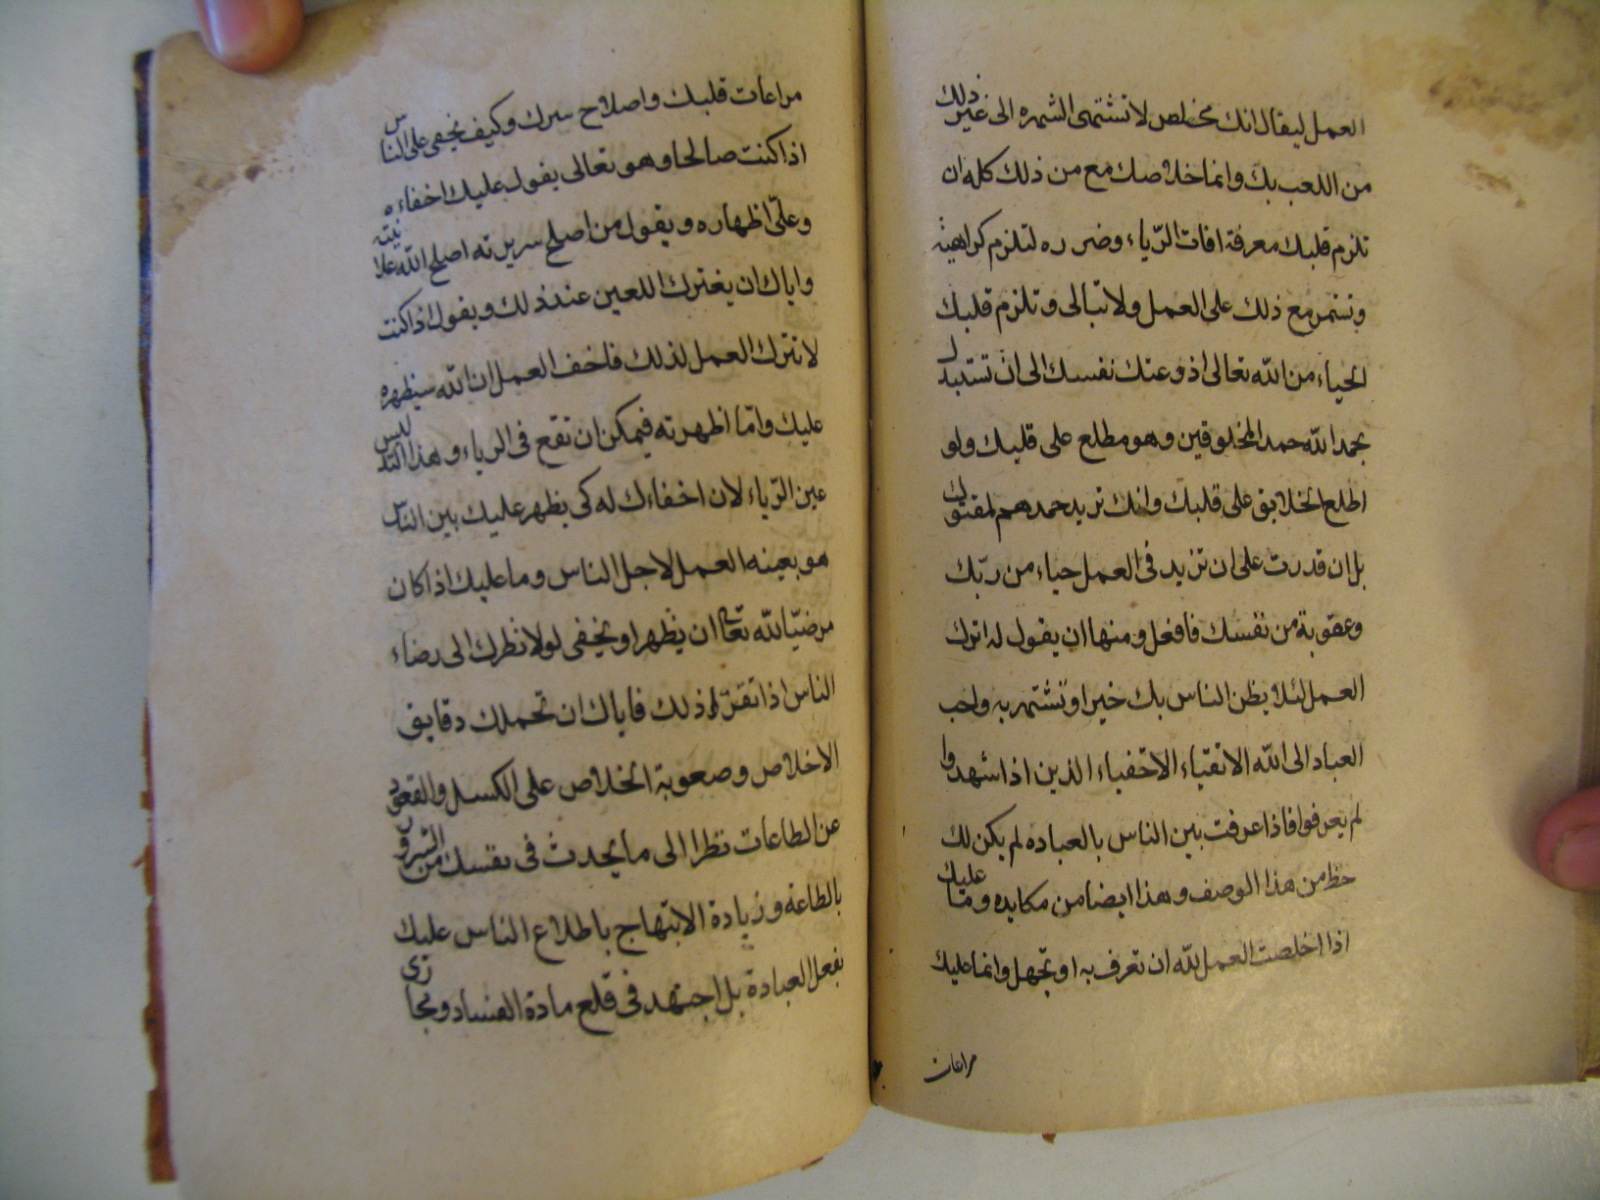 العمل ليقال انك مخلص لا تشتهى الشهره الى غير ذلك
من اللعب بك وانما خلاصك مع من ذلك كله ان
تلزم قلبك معرفة افات الرّياء وضرره لتلزم كراهيته
وتستمر مع ذلك على العمل ولا تبالى وتلزم قلبك
الحياء من الله تعالى اذ وعتك نفسك الى ان تستبدل
بحمد الله حمد المخلوقين وهو مطلع على قلبك ولو
اطلع الخلايق على قلبك وانك تريد حمدهم لمقتوك
بل ان قدرت على ان تزيد فى العمل حياء من ربّك
وعقوبة من نفسك فافعل ومنها ان يقول له اترك
العمل لئلا يظن الناس بك خيرا وتشتهر به واحب
العباد الى الله الاتقياء الاخفياء الذين اذا شهدوا
لم يعرفوا فاذا عرفت بين الناس بالعباده لم يكن لك
حظ من هذا الوصف وهذا ايضا من مكايده وما عليك
اذا اخلصت العمل لله ان تعرف به او تجهل وانما عليك
مراعات
مراعات قلبك واصلاح سرك وكيف يخفى على الناس
اذا كنت صالحا وهو تعالى يقول عليك اخفاءه
وعلىّ اظهاره ويقول من اصلح سريرته اصلح الله علانيته
واياك ان يغترك اللعين عند ذلك ويقول اذا كنت
لا تترك العمل لذلك فاخف العمل ان الله سيظهره
عليك وامّا اظهرته فيمكن ان تقع فى الرياء وهذا التلبيس
عين الرّياء لان اخفاءك له كى يظهر عليك بين الناس
هو بعينه العمل لاجل الناس وما عليك اذا كان
مرضيّا لله تعالى ان يظهر او يخفى لولا نظرك الى رضاء
الناس اذا تقرّر ذلك فاياك ان تحملك دقايق
الاخلاص وصعوبة الخلاص على الكسل والقعود
عن الطاعات نظرا الى ما يحدث فى نفسك من السرور
بالطاعة وزيادة الابتهاج باطلاع الناس عليك
بفعل العبادة بل اجتهد فى قلع مادة الفساد ومجارى